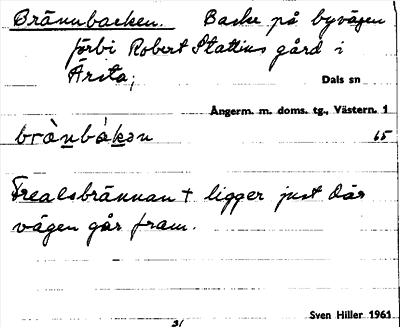 Brännbacken. Backe på byvägen
förbi Robert Stattins gård i
Ärsta;
Dals sn
Ångerm. m. doms. tg., Västern. 1
brànbákən 65
Frealsbrännan + ligger just där
vägen går fram.
Sven Hiller 1961
31